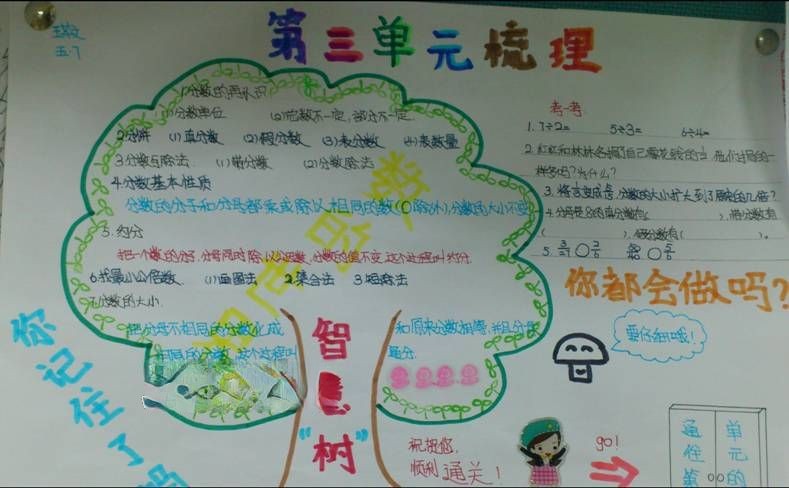 五·7
第三单元梳理
1.分数的再认识
(1)分数单位 (2)总数不一定,部分不一定
2.分饼 (1)真分数 (2)假分数 (3)表分数 (4)表数量
3.分数与除法 (1)带分数 (2)分数除法
4.分数基本性质
分数的分子和分母都乘或除以相同的数(0除外),分数的大小不变
5.约分
把一个数的分子、分母同时除以公因数,分数的值不变,这个过程叫约分
6.找最小公倍数 (1)画圈法 2.集合法 3.短除法
7.分数的大小
把分母不相同的分数化成
和原来分数相等,并且分母
相同的分数,这个过程叫
通分.
智慧"树"
你记住了吗
考一考
1. 7÷2= 5÷3= 6÷4=
2.红红和林林各捐了自己零花钱的
一样多吗?为什么?
3. 分数的大小扩大到了原来的几倍?
4.分母是8的真分数有( ),假分数有
( ), 分数有( )。
5.
你都会做吗?
要仔细哦!
祝祝您,
顺利通关!
go!
通往第
单元的